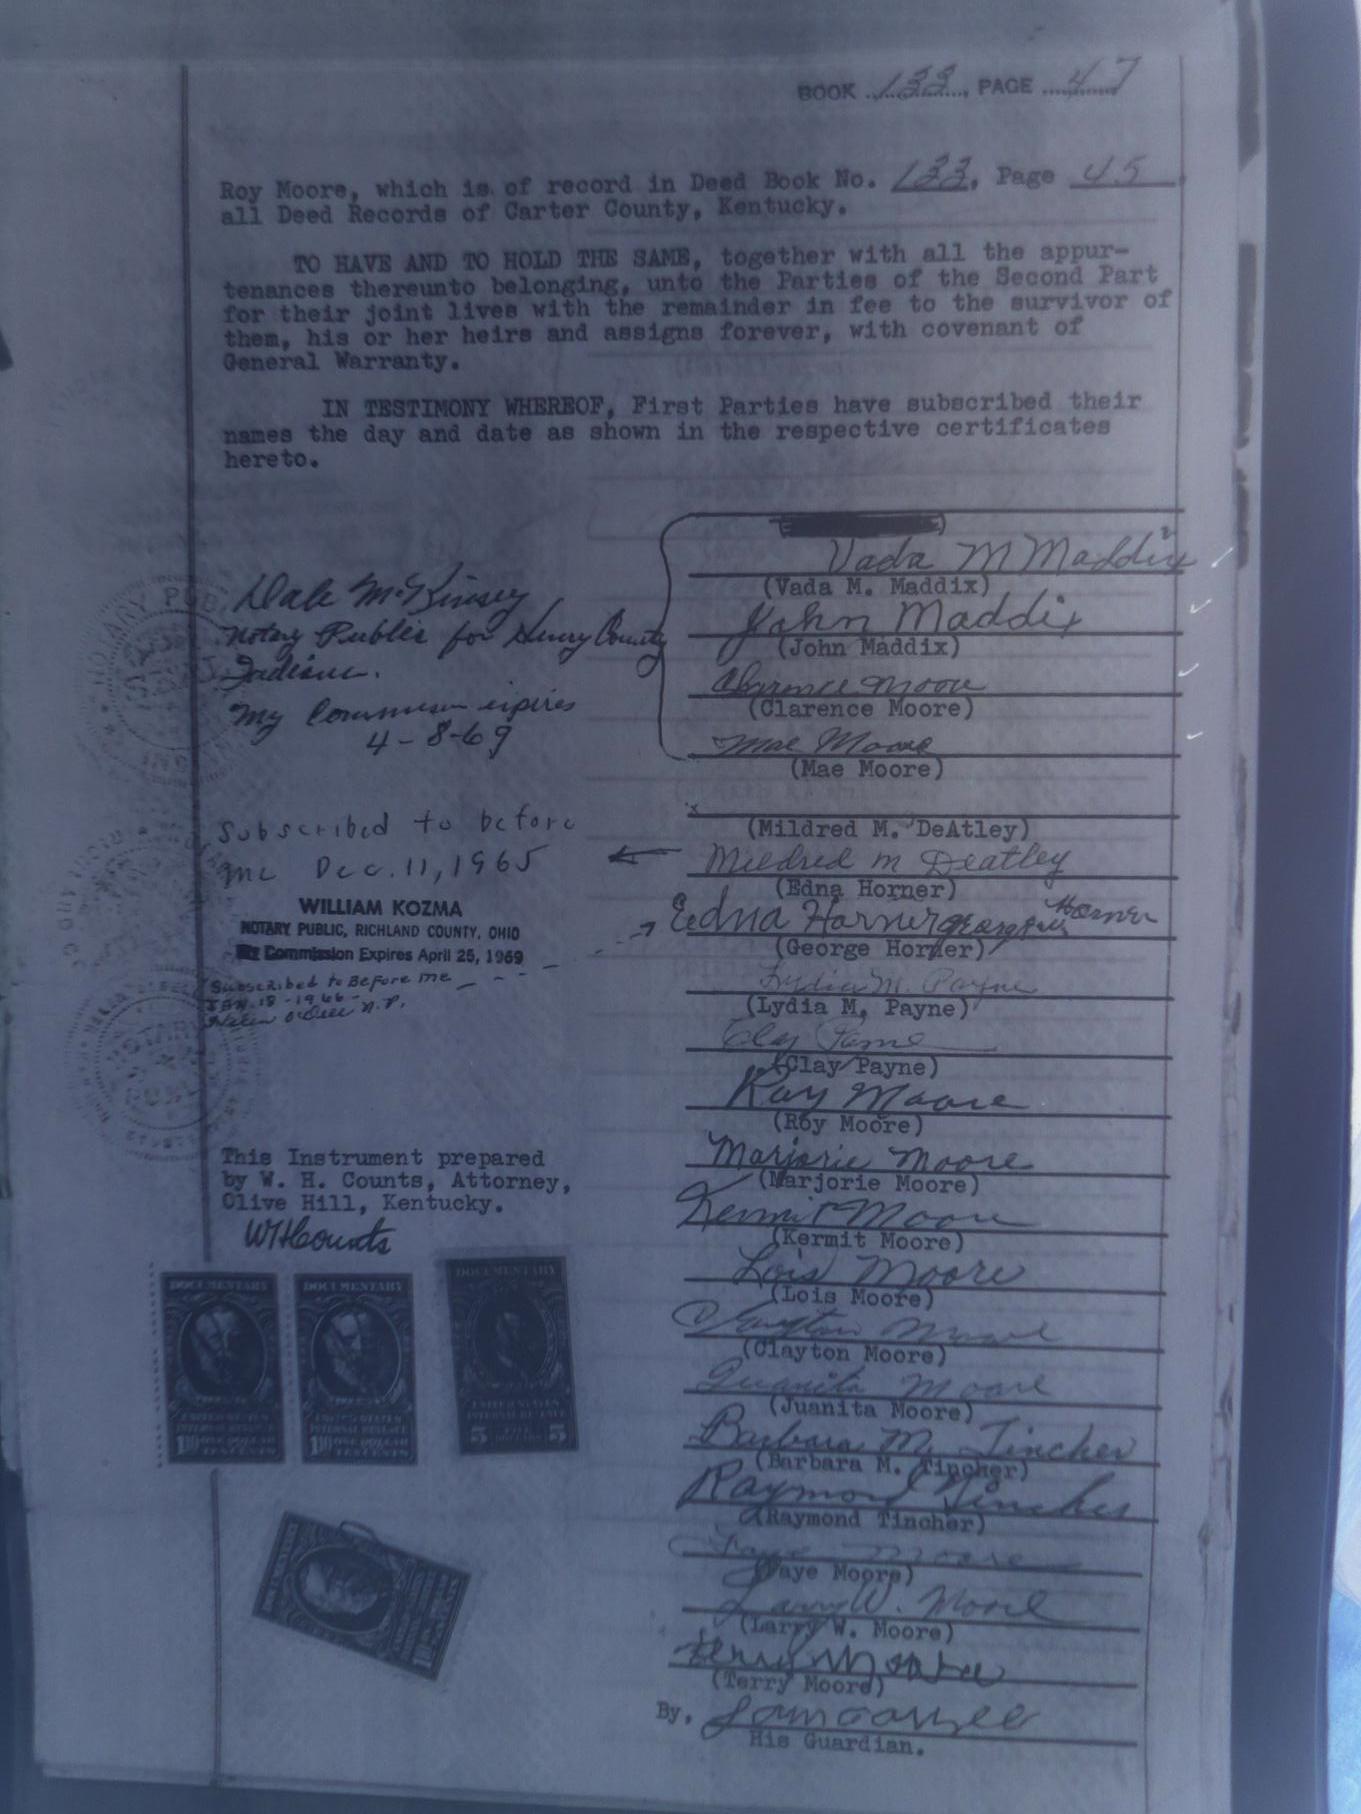 BOOK 133, PAGE 47
Roy Moore, which is of record in Deed Book No. 133, Page 45
all Deed Records of Carter County, Kentucky.
TO HAVE AND TO HOLD THE SAME, together with all the appur-
tenances thereunto belonging, unto the Parties of the Second Part
for their joint lives with the remainder in fee to the survivor of
them, his or her heirs and assigns forever, with covenant of
General Warranty.
IN TESTIMONY WHEREOF, First Parties have subscribed their
names the day and date as shown in the respective certificates
hereto.
Vada M Maddix
(Vada M. Maddix)
John Maddix
(John Maddix)
Clarence Moore
(Clarence Moore)
Mae Moore
(Mae Moore)
Dale McKinsey
Notary Public for Henry County
Indiana.
My Commission expires
4-8-69
(Mildred M. DeAtley)
Mildred M Deatley
(Edna Horner)
Edna Horner George Horner
(George Horner)
Lydia M. Payne
(Lydia M. Payne)
Clay Payne
(Clay Payne)
Roy Moore
(Roy Moore)
Marjorie Moore
(Marjorie Moore)
Kermit Moore
(Kermit Moore)
Lois Moore
(Lois Moore)
Clayton Moore
(Clayton Moore)
Juanita Moore
(Juanita Moore)
Barbara M. Tincher
(Barbara M. Tincher)
Raymond Tincher
(Raymond Tincher)
Faye Moore
(Faye Moore)
Larry W. Moore
(Larry W. Moore)
Terry Moore
(Terry Moore)
By,
His Guardian.
Subscribed to before
me Dec. 11, 1965
WILLIAM KOZMA
NOTARY PUBLIC, RICHLAND COUNTY, OHIO
My Commission Expires April 25, 1969
Subscribed to Before me
JAN. 18-1966-
Helen N.P.
NOTARY PUB
This Instrument prepared
by W. H. Counts, Attorney,
Olive Hill, Kentucky.
WHCounts
DOCUMENTARY
UNITED STATES
INTERNAL REVENUE
DOCUMENTARY
UNITED STATES
INTERNAL REVENUE
ONE DOLLAR
DOCUMENTARY
UNITED STATES
INTERNAL REVENUE
5 5